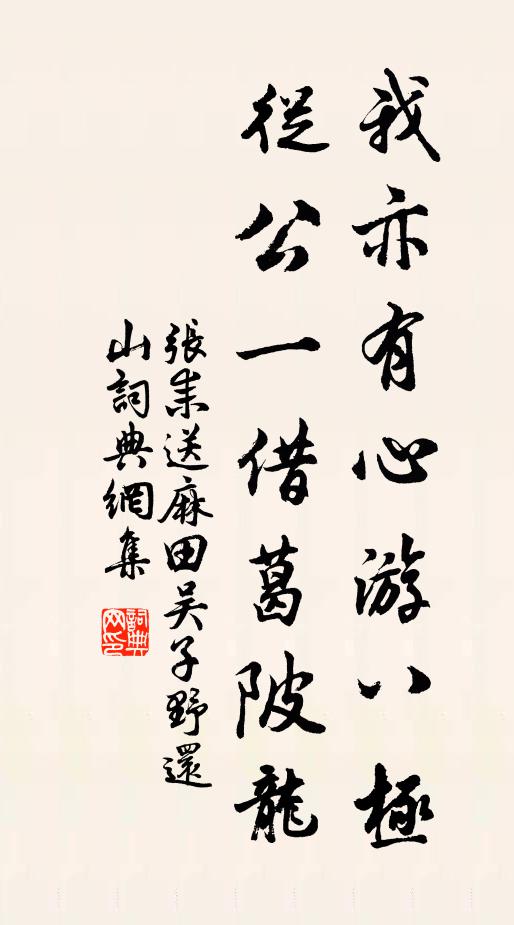 我亦有心游八極
從公一借葛陂龍
張耒送麻田吳子野還
山詞典網集
詞典
网印